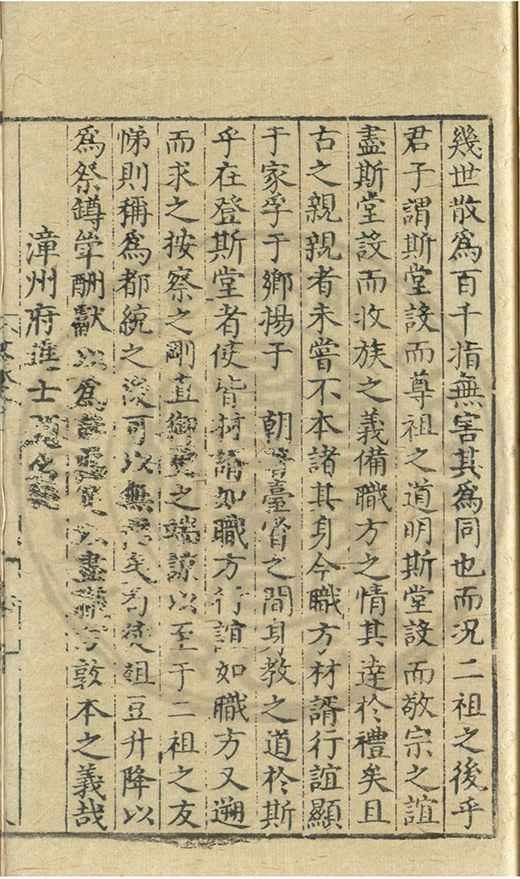 幾世散為百千指無害其為同也而況二祖之後乎
君子謂斯堂設而尊祖之道明斯堂設而敬宗之誼
盡斯堂設而收族之義備職方之情其達於禮矣且
古之親親者未嘗不本諸其身今職方材諝行誼顯
于家孚于鄉揚于 朝臺省之間身教之道於斯
乎在登斯堂者使皆材諝如職方行誼如職方又遡
而求之按察之剛直之端諒以至于二祖之友
悌則稱為都統之後可以無矣俎豆升降以
為祭鐏斝酬獻以為盡敦本之義哉
漳州府進士